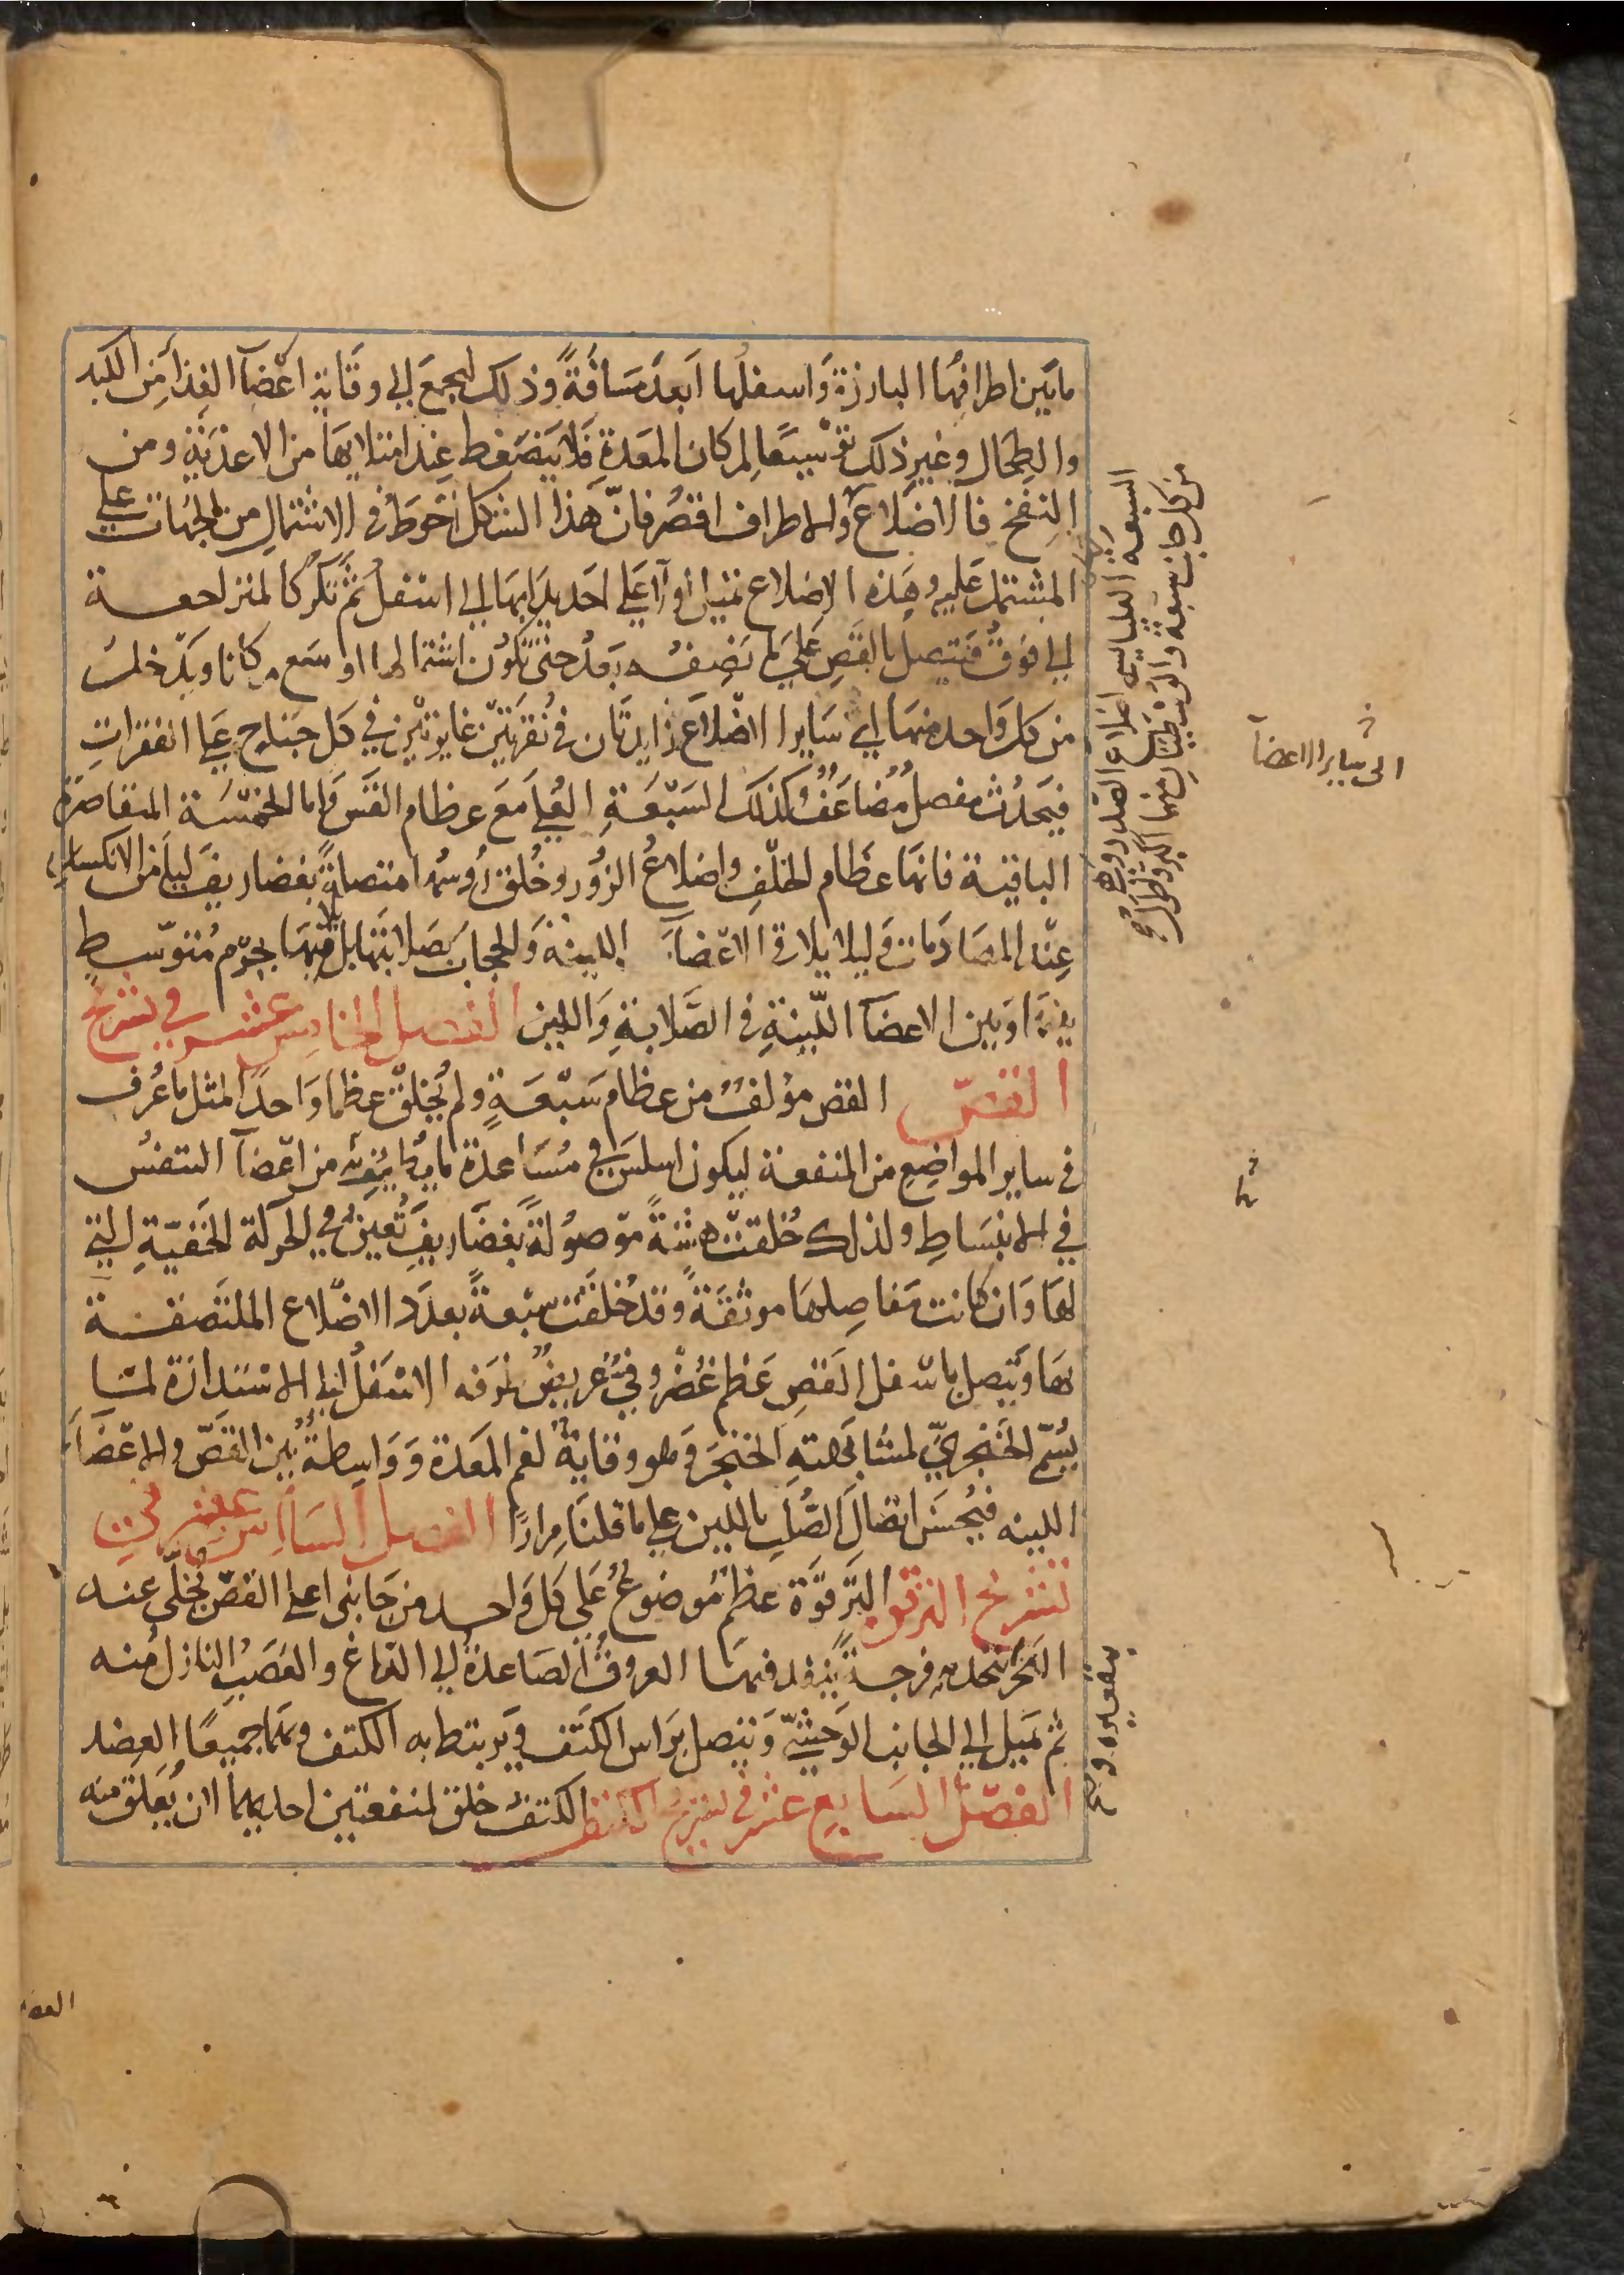 ما بَين اطرافِهَا البارزة وَاسفلها اَبعدَ مسَافَةً وذلك ليجمعَ الى وقَاية اعْضآ الغِذآ مِن الكبد
والطِحَال وغيرِ ذلك توْسيعًا لمكان المعَدةِ فَلا يَنضغط عند امتلايهَا من الاغذيَةِ ومن
النفخ فالاضلاع والاطراف اقصرُ فانّ هَذا الشكل اَحْوَطُ في الاشتمالِ من الجهات على
المشتمل عَليه وهَذه الاضلاع تميل اوّلاً عَلى احَديدابهَا الى اسْفلُ ثُمَّ تكرّ كالمتراجعة
الى فوَقُ فتتصل بالقَصِ عَلى مَا نَصِفُه بَعدُ حتى تكوُن اشتمالها اوسَع مكانا ويَدْخل
من كل وَاحد منهَا اي سَاير الاضْلاَع زايدتَان في نُقرتَيْن غايرتَيْن في كل جناحٍ عَلى الفقراتِ
فيَحدُث مفصل مُضاعَفٌ وكذلك السَبْعَةِ العُلى مَع عظام القَس وَاما الخمْسَة المتقاصرَة
الباقية فانهَا عظَام الخلْفِ واضلاعُ الزُور وخُلقت رُوسُها متصلةً بغضاريفَ ليأمَن الانكسار
عنْد المصَادَمات وَليلا يلاقي الاعْضآَ اللينة وَالحجابَ بصَلابَتها بل يلاقيهَا بجرْم مُتوسّطٍ
بينهَا وَبين الاعضآ اللّينةِ في الصَّلابةِ وَاللين الفصل الخامس عشر في تشريح
القصّ القص مؤلفٌ من عظام سَبْعَةٍ ولم يُخلقْ عظما وَاحدًا لمثل ما عُرف
في ساير المواضِعِ من المنفعة ليكون اسلسَ في مسَاعدة ما يطيف به من اعْضآ التنفُس
في الانبسَاطِ ولذلك خُلقتْ هشةً موْصُولةً بغضَاريفَ تُعينُ في الحركة الخَفيّةِ التي
لهَا وَان كانت مَفاصِلهَا موثقَةً وَقد خُلقَت سبْعةً بعدَد الاضْلاع الملتصقة
بهَا وَيتصل باسْفل القصِ عَظم غُضْروفيٌ عَريضٌ طرَفه الاسْفلُ الى الاستدارَة لمَا
يُسَمَّى الخَنجريِّ لمشابهتهِ الخنجرَ وَهو وقايةٌ لفم المعَدة وَوَاسطةٌ بَين القصّ والاعْضآَ
اللينه فيحْسَن اتصَالَ الصُّلبِ باللين على ما قلنَا مِرارًا الفصل السَادس عشر في
تشريح الترقوة الترَّقوَّة عظمٌ مَوضوعٌ عَلى كل وَاحد من جَانِبى اعلى القصّ يُخلّى عند
النحر بتحدبه فرجةً ينفذ فيهَا العروقُ الصَاعدةُ الى الدّمَاغ والعَصَبُ النازلُ منه
ثم تميل الى الجانب الوَحْشيّ وَيتصل برَاس الكتف وَيرتبط به الكتف وبهما جميعًا العضد
الفصْل السَابع عشر في تشريح الكتف الكتف خلق لمنفعتين احديهما ان يُعَلق منه
السبعة العليا تسمى اضلاع الصدر وهي
من كل جانب سبعة والوسطيان منها اكبر واطول
الى ساير الاعضآ
العضد